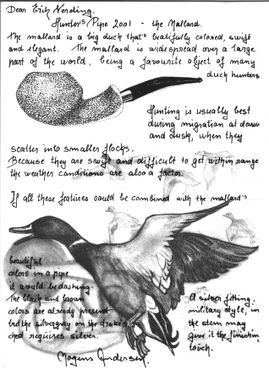 Dear Erik Nording.
Hunters Pipe 2001 - the Mallard.
The mallard is a big duck that's beatifully colored, swift
and elegant. The mallard is widespread over a large
part of the world, being a favourite object of many
duck hunters
Hunting is usually best
during migration at dawn
and dusk, when they
scatter into smaller flocks.
Because they are swift and difficult to get within range
the weather conditions are also a factor.
If all these features could be combined with the mallard's
beautiful
colors in a pipe
it would be dashing.
The black and brown
colors are already present
but the silvergray on the drake's
requires silver.
A silver fitting,
military style, in
the stem may
give it the finishing
touch.
Mogens Andersen